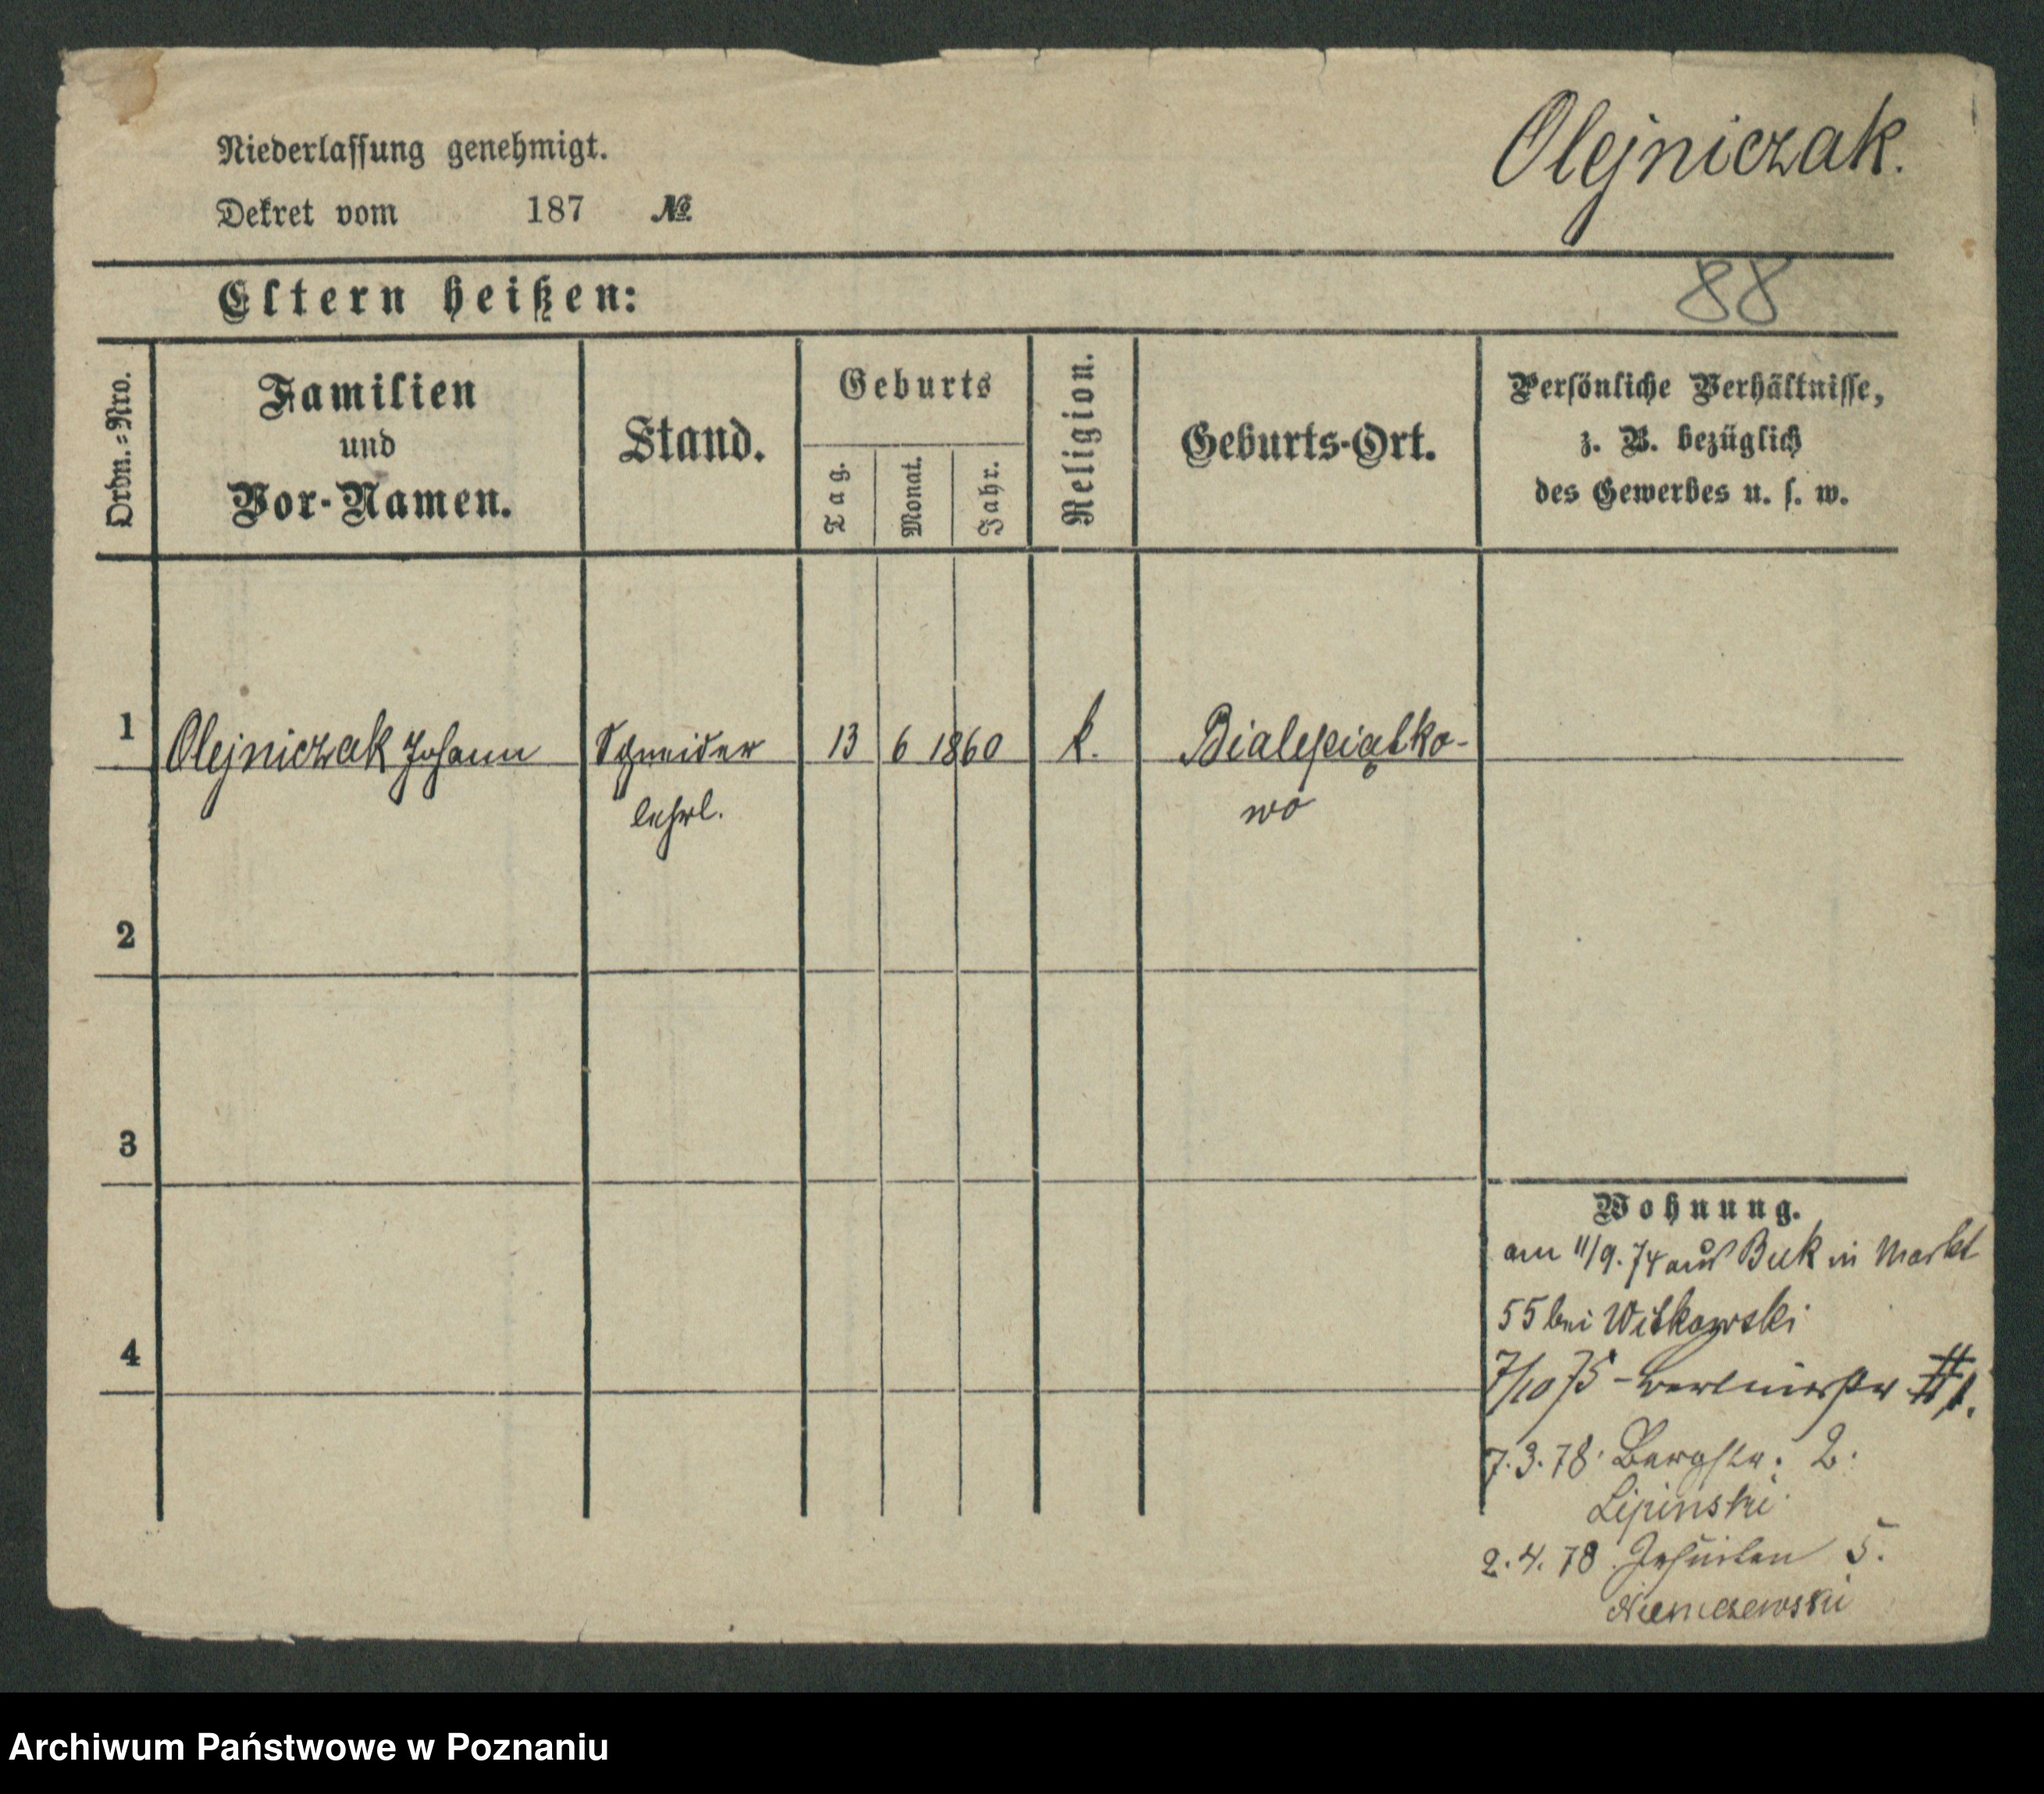 Olejniczak.
Niederlassung genehmigt.
Dekret vom 187 №
Eltern heißen:
88
Ordn.=Nro.
Familien
und
Vor-Namen.
Stand.
Geburts
Tag.
Monat.
Jahr.
Religion.
Geburts-Ort.
Persönliche Verhältnisse,
z. B. bezüglich
des Gewerbes u. s. w.
1 Olejniczak Johann Schneider 13 6 1860 k. Bialepiątko-
lehrl. wo
2
3
4
Wohnung.
am 11/9. 74 aus Buk in Markt
55 bei Witkowski
7/10 75 - Berlinerstr 1.
7.3.78. Bergstr. 2.
Lipinski
2.4.78 Jesuiten 5.
Niemczewski
Archiwum Państwowe w Poznaniu